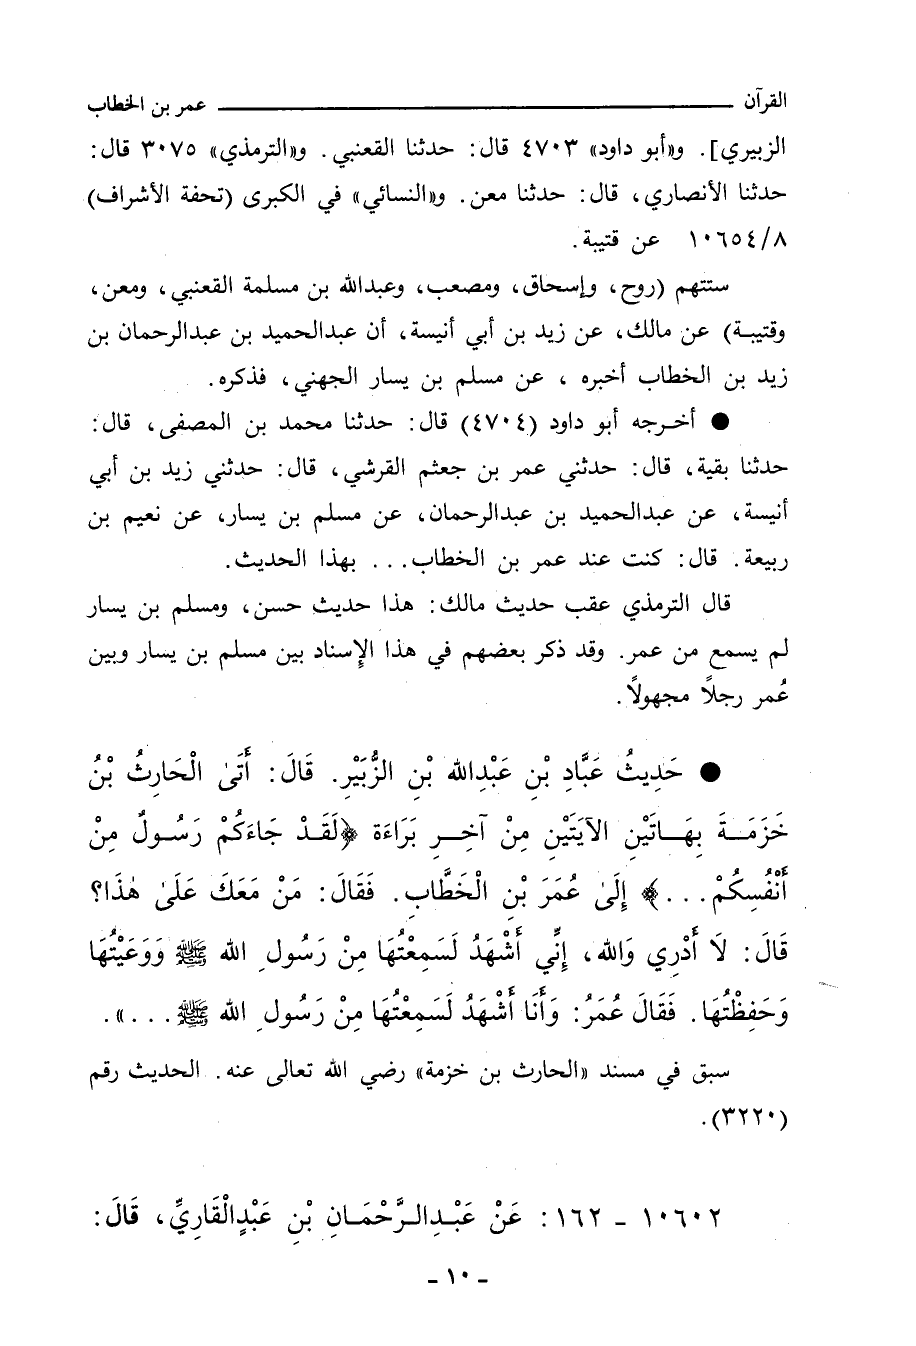 القرآن ــــــــــــــــــــ عمر بن الخطاب
الزبيري]. و«أبو داود» ٤٧٠٣ قال: حدثنا القعنبي. و«الترمذي» ٣٠٧٥ قال:
حدثنا الأنصاري، قال: حدثنا معن. و«النسائي» في الكبرى (تحفة الأشراف)
١٠٦٥٤/٨ عن قتيبة.
ستتهم (روح، وإسحاق، ومصعب، وعبدالله بن مسلمة القعنبي، ومعن،
وقتيبة) عن مالك، عن زيد بن أبي أنيسة، أن عبدالحميد بن عبدالرحمان بن
زيد بن الخطاب أخبره ، عن مسلم بن يسار الجهني، فذكره.
● أخرجه أبو داود (٤٧٠٤) قال: حدثنا محمد بن المصفى، قال:
حدثنا بقية، قال: حدثني عمر بن جعثم القرشي، قال: حدثني زيد بن أبي
أنيسة، عن عبدالحميد بن عبدالرحمان، عن مسلم بن يسار، عن نعيم بن
ربيعة. قال: كنت عند عمر بن الخطاب... بهذا الحديث.
قال الترمذي عقب حديث مالك: هذا حديث حسن، ومسلم بن يسار
لم يسمع من عمر. وقد ذكر بعضهم في هذا الإسناد بين مسلم بن يسار وبين
عُمر رجلاً مجهولاً.
● حَدِيثُ عَبَّادِ بْنِ عَبْدِالله بْنِ الزُّبَيْرِ. قَالَ: أَتَىٰ الْحَارِثُ بْنُ
خَزَمَـةَ بِهَـاتَيْنِ الآيَتَيْنِ مِنْ آخِـرِ بَرَاءَة ﴿لَقَـدْ جَاءَكُمْ رَسُـولٌ مِنْ
أَنْفُسِكُمْ...﴾ إِلَىٰ عُمَرَ بْنِ الْخَطَّابِ. فَقَالَ: مَنْ مَعَكَ عَلَىٰ هٰذَا؟
قَالَ: لَا أَدْرِي وَالله، إِنِّي أَشْهَدُ لَسَمِعْتُهَا مِنْ رَسُولِ الله ﷺ وَوَعَيْتُهَا
وَحَفِظْتُهَا. فَقَالَ عُمَرُ: وَأَنَا أَشْهَدُ لَسَمِعْتُهَا مِنْ رَسُولِ الله ﷺ ...».
سبق في مسند «الحارث بن خزمة» رضي الله تعالى عنه. الحديث رقم
(٣٢٢٠).
١٠٦٠٢ - ١٦٢: عَنْ عَبْـدِالـرَّحْمَـانِ بْنِ عَبْدٍالْقَارِيِّ، قَالَ:
- ١٠ -